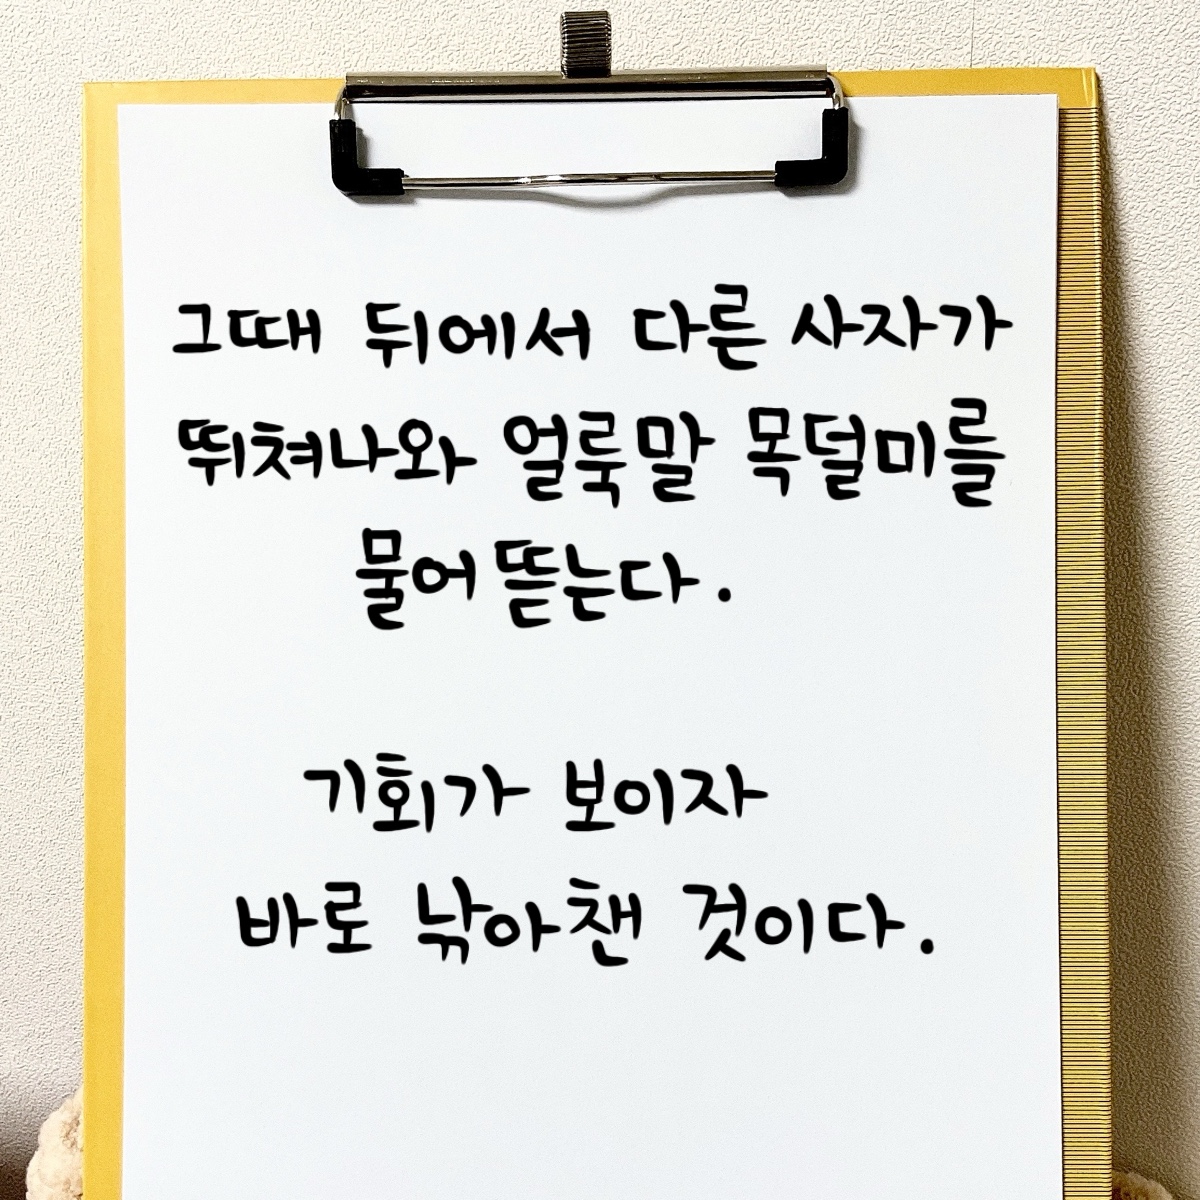 그때 뒤에서 다른 사자가
뛰쳐나와 얼룩말 목덜미를
물어 뜯는다.
기회가 보이자
바로 낚아챈 것이다.